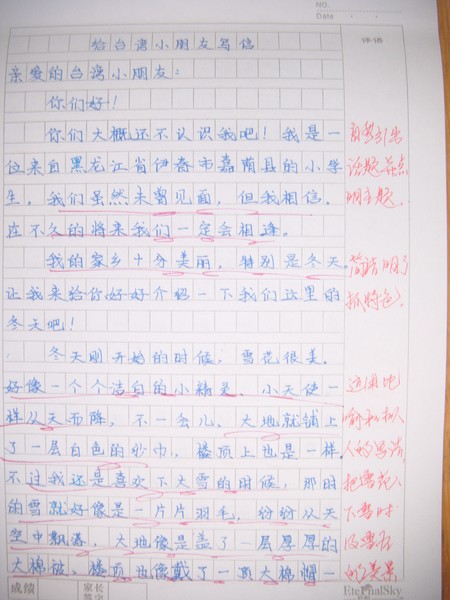 NO.
Date
评语
给台湾小朋友写信
亲爱的台湾小朋友:
你们好!
你们大概还不认识我吧!我是一
位来自黑龙江省伊春市嘉荫县的小学
生。我们虽然未曾见面,但我相信,
在不久的将来我们一定会相逢。
我的家乡十分美丽,特别是冬天。
让我来给你好好介绍一下我们这里的
冬天吧!
冬天刚开始的时候,雪花很美。
好像一个个洁白的小精灵、小天使一
样从天而降,不一会儿,大地就铺上
了一层白色的纱巾,楼顶上也是一样
不过我还是喜欢下大雪的时候,那时
的雪就好像是一片片羽毛,纷纷从天
空中飘落,大地像是盖了一层厚厚的
大棉被,楼顶也像戴了一顶大棉帽一
话题并点
明主题。
简洁明了
抓特色。
喻和拟人
把雪花
下雪时
的美景
成绩
家长
签字
EternalSky